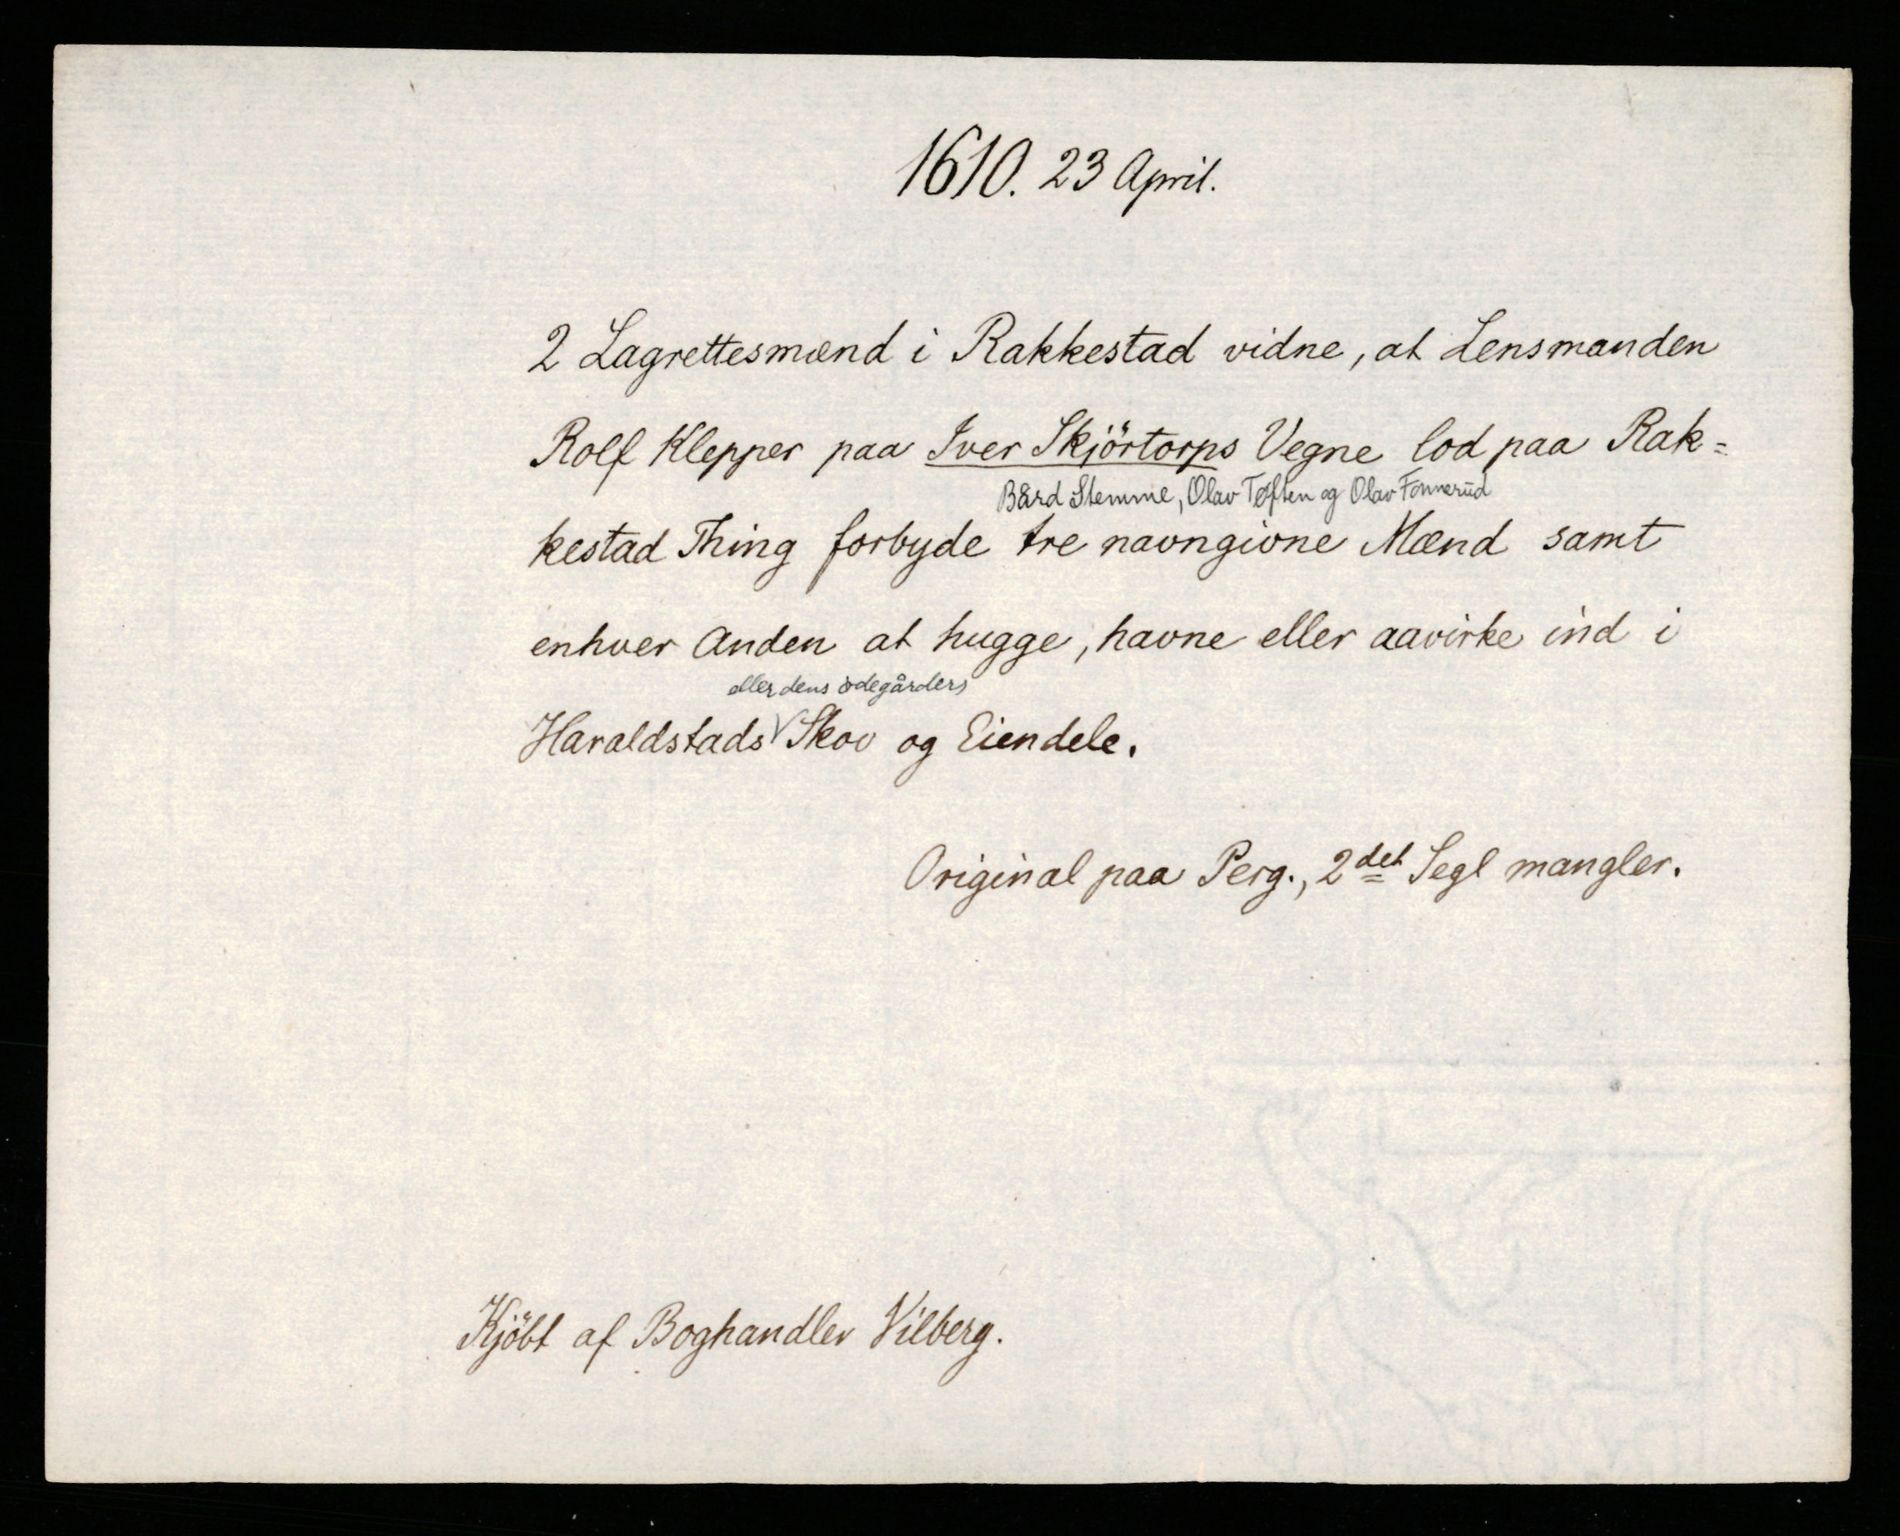 1610. 23 April.
2 Lagrettesmænd i Rakkestad vidne, at Lensmanden
Rolf Klepper paa Iver Skjörtorps Vegne lod paa Rak=
Bård Stemme, Olav Tøften og Olav Fonnerud
kestad Thing forbyde tre navngivne Mænd samt
enhver Anden at hugge, havne eller aavirke ind i
eller dens ödegårders
Haraldstads Skov og Eiendele.
Original paa Perg., 2det Segl mangler.
Kjöbt af Boghandler Vilberg.